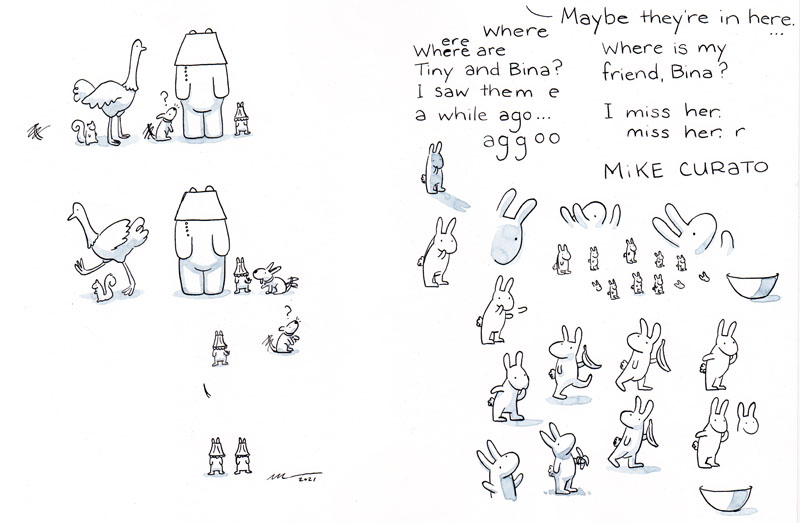 ?
?
2021
Maybe they're in here.
...
where
ere
Where are
Tiny and Bina?
I saw them e
a while ago...
aggoo
Where is my
friend, Bina?
I miss her.
miss her. r
MiKE CURATO